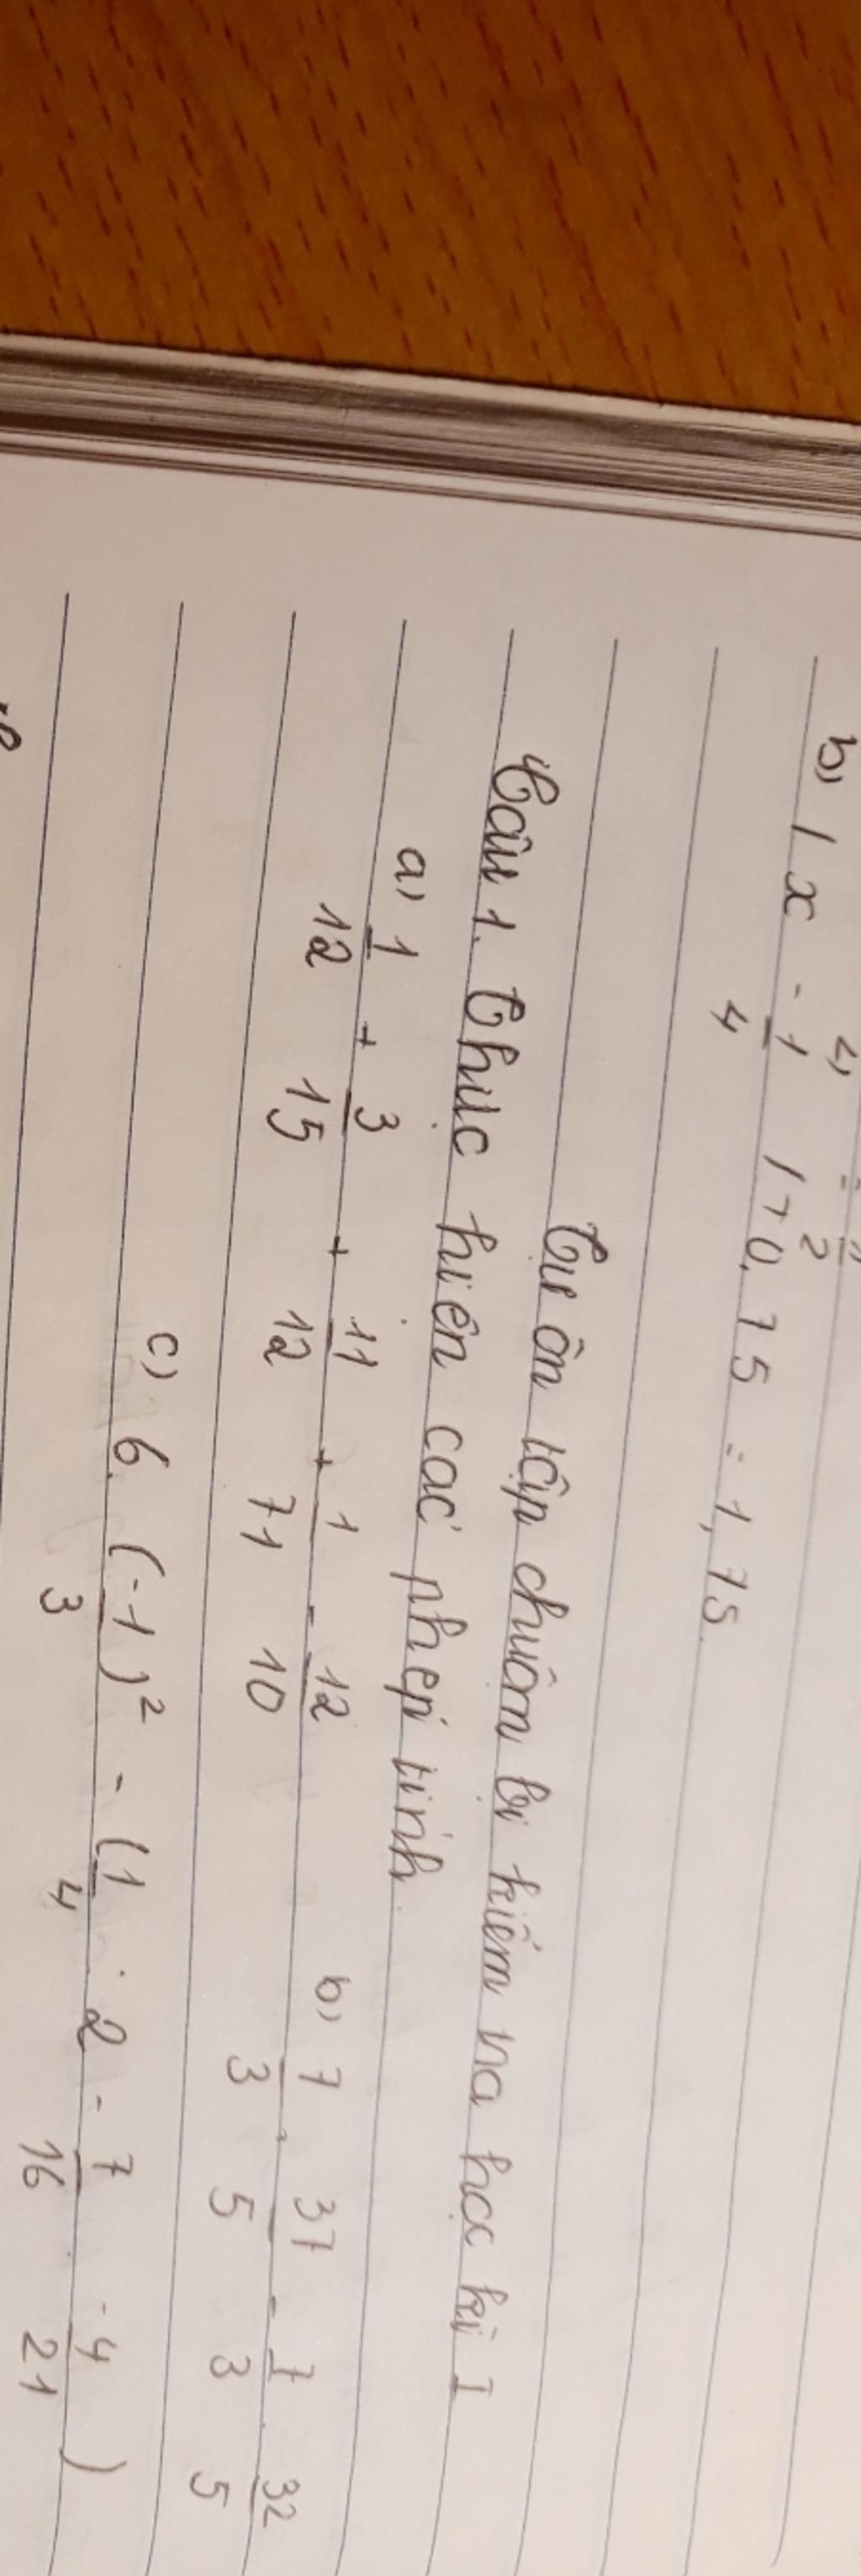 b) | x - 1/4 | + 0,75 = 1,75
Tự ôn tập chuẩn bị kiểm tra học kì I
Câu 1. Thực hiện các phép tính
a) 1/12 + 3/15 + 11/12 + 1/71 - 12/10
b) 7/3 . 37/5 - 7/3 . 32/5
c) 6. (-1/3)² - (1/4 : 2 - 7/16 . -4/21)